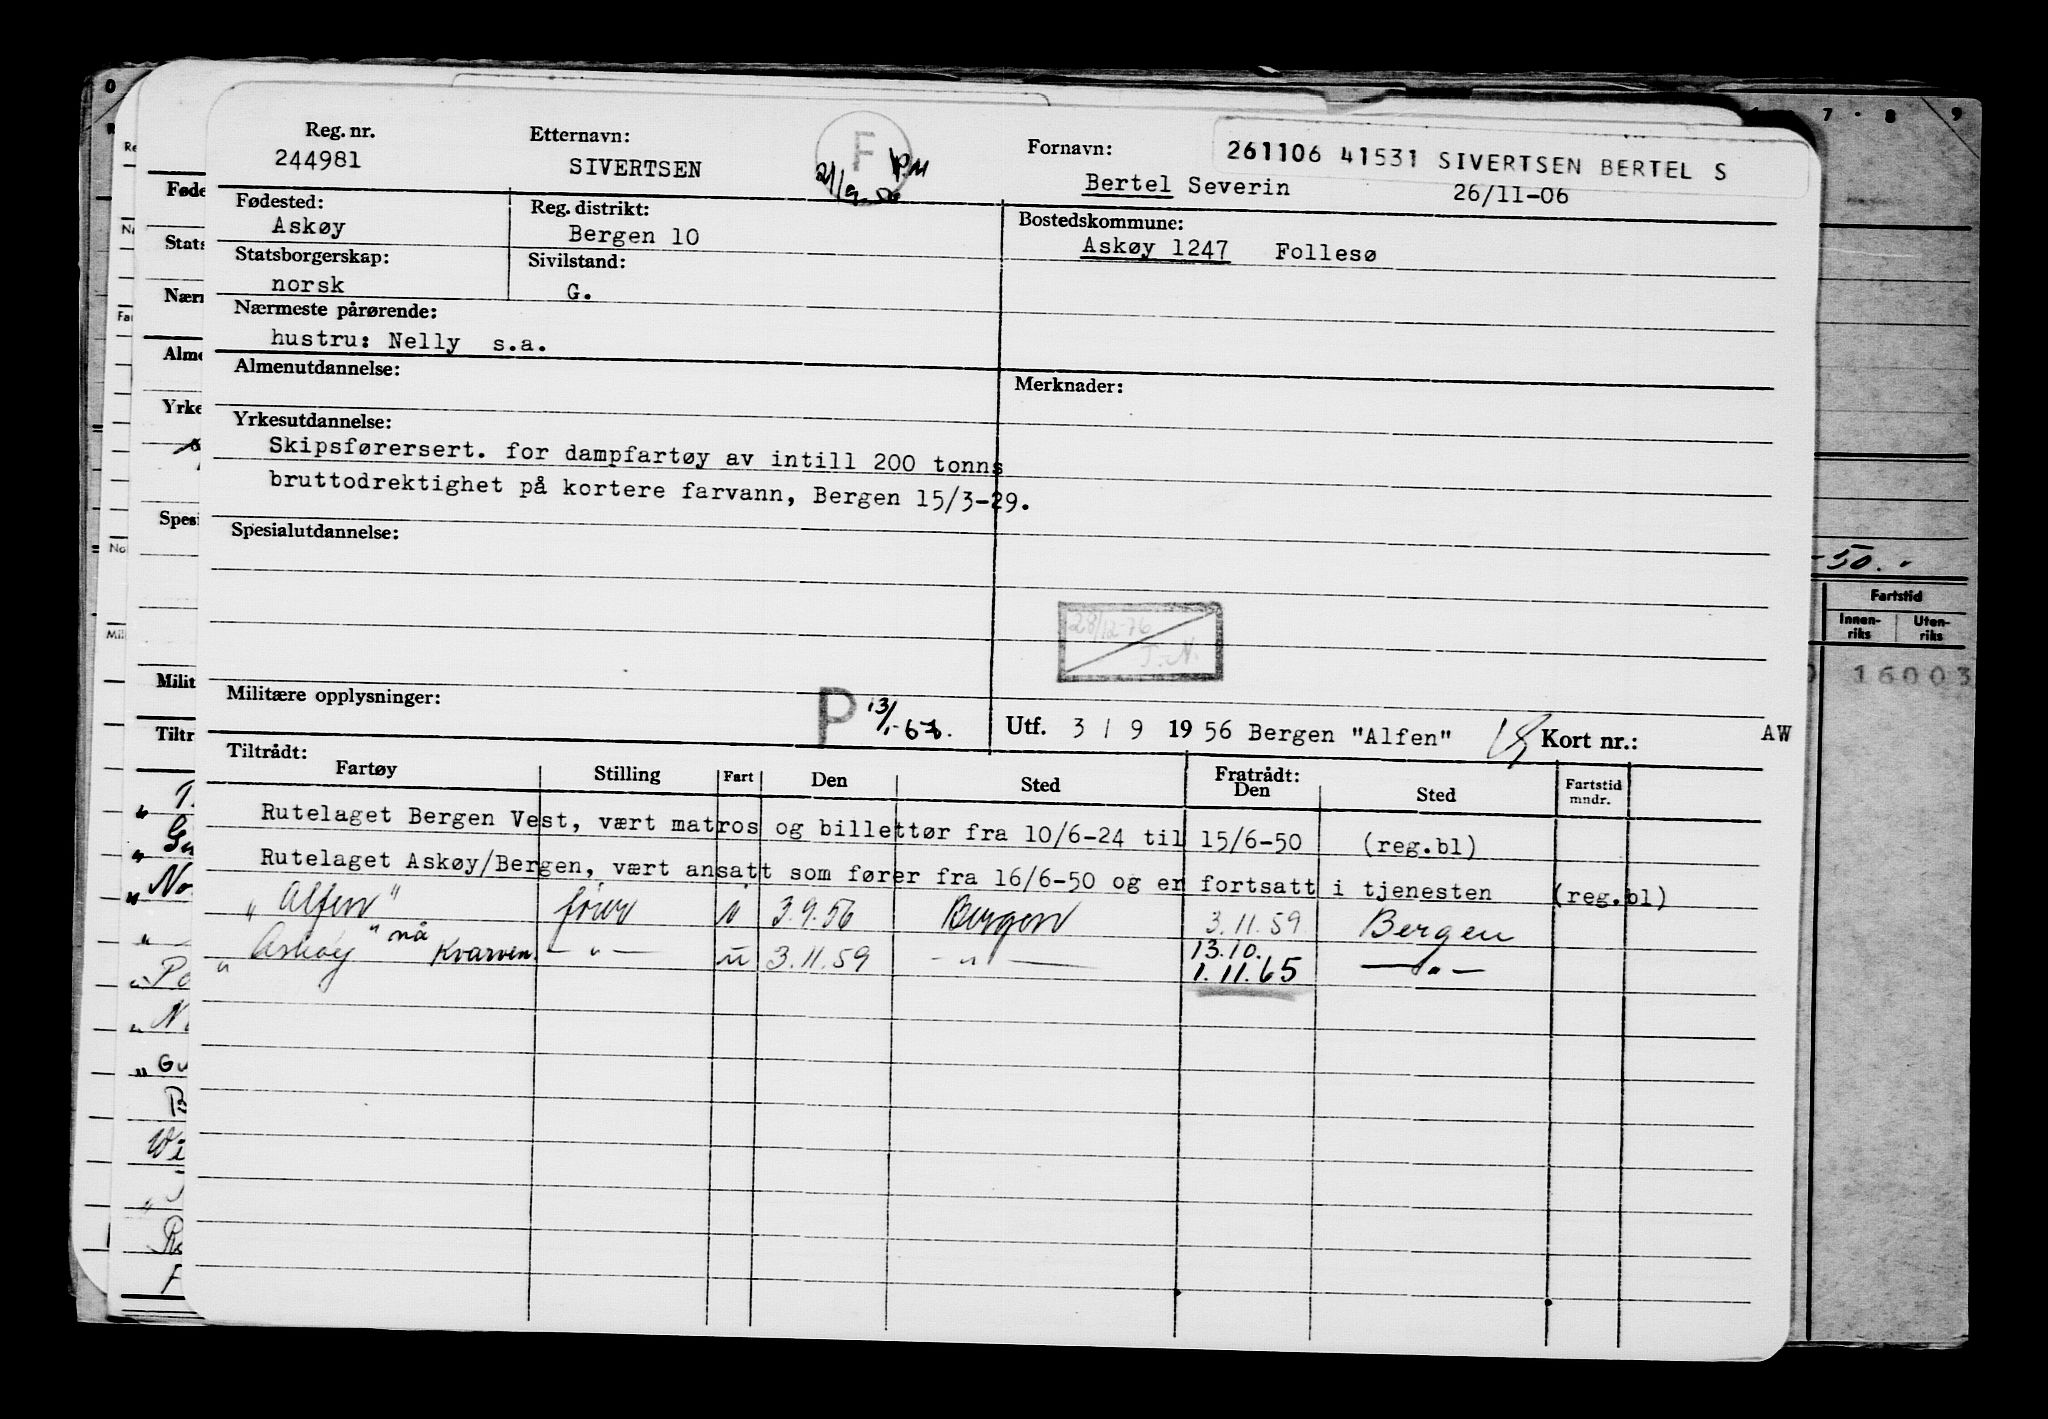 Reg. nr. Etternavn: F Fornavn: 261106 41531 SIVERTSEN BERTEL S
244981 SIVERTSEN Bertel Severin 26/11-06
Fødested: Reg. distrikt: Bostedskommune:
Askøy Bergen 10 Askøy 1247 Follesø
Statsborgerskap: Sivilstand:
norsk G.
Nærmeste pårørende:
hustru: Nelly s.a.
Almenutdannelse: Merknader:
Yrkesutdannelse:
Skipsførersert. for dampfartøy av intill 200 tonns
bruttodrektighet på kortere farvann, Bergen 15/3-29.
Spesialutdannelse:
28/12-76
T.N.
Militære opplysninger: P
Utf. 3 / 9 19 56 Bergen "Alfen" Kort nr.: AW
Tiltrådt: Fratrådt:
Fartøy Stilling Fart Den Sted Den Sted Fartstid mndr.
Rutelaget Bergen Vest, vært matros og billettør fra 10/6-24 til 15/6-50 (reg.bl)
Rutelaget Askøy/Bergen, vært ansatt som fører fra 16/6-50 og er fortsatt i tjenesten (reg.bl)
"Alfen" fører 3.9.56 Bergen 3.11.59 Bergen
"Askøy" nå Kvarven — " — 3.11.59 — " — 13.10. — " —
1.11.65
7 . 8 9
-50.
Fartstid
Innen-riks Uten-riks
16003